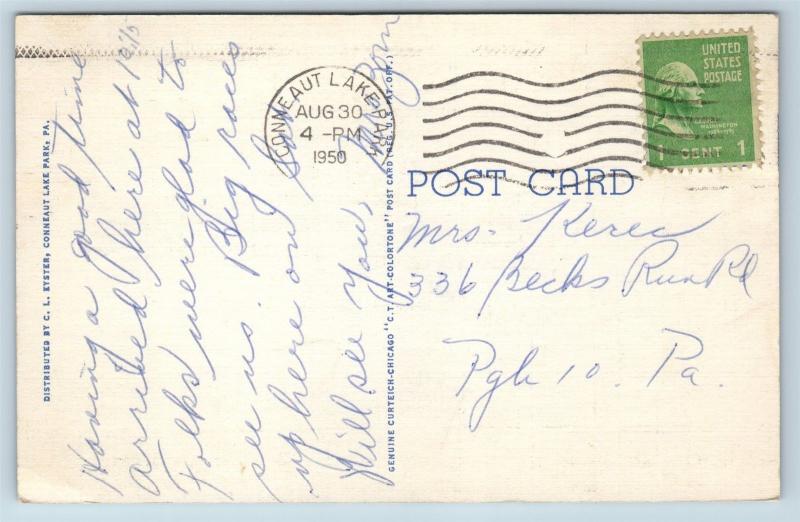 Having a good time
arrived here at 12:15
Folks were glad to
see us. Big races
up here on Sun.
Will see you, Mon
DISTRIBUTED BY C. L. EYSTER, CONNEAUT LAKE PARK, PA.
GENUINE CURTEICH-CHICAGO "C.T. ART-COLORTONE" POST CARD (REG. U.S. PAT. OFF.)
CONNEAUT LAKE PARK PA
AUG 30
4 -PM
1950
UNITED
STATES
POSTAGE
WASHINGTON
1 CENT 1
POST CARD
Mrs. Keree
336 Becks Run Rd
Pgh 10. Pa.